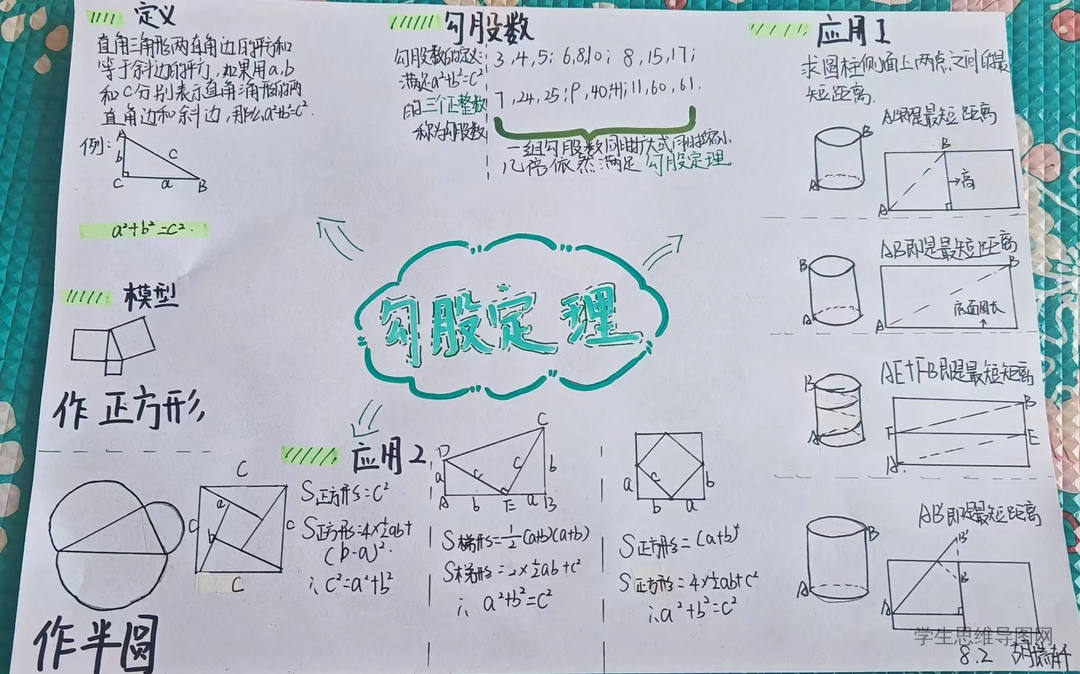 定义
直角三角形两直角边的平方和
等于斜边的平方,如果用a,b
和C分别表示直角三角形的两
直角边和斜边,那么a²+b²=c².
例:
A
b
c
C
a
B
a²+b²=c².
模型
作正方形
作半圆
勾股数
勾股数的定义:
满足a²+b²=c²
的三个正整数
称为勾股数
3,4,5; 6,8,10; 8,15,17;
7,24,25; 9,40,41; 11,60,61.
一组勾股数同时扩大或同时缩小
几倍依然满足勾股定理
勾股定理
应用1
求圆柱侧面上两点之间的最
短距离.
AB即是最短距离
B
A
B
A
高
AB即是最短距离
B
A
B
A
底面周长
AE+FB即是最短距离
B
A
B
F
E
A
AB'即是最短距离
B
A
B'
B
A
应用2
C
C
C
C
a
b
S正方形=c²
S正方形=4×½ab+
(b-a)².
∴c²=a²+b²
D
C
a
c
c
b
A
b
E
a
B
S梯形=½(a+b)(a+b)
S梯形=2×½ab+c²
∴a²+b²=c²
c
a
b
b
a
S正方形=(a+b)²
S正方形=4×½ab+c²
∴a²+b²=c²
学生思维导图网
8.2